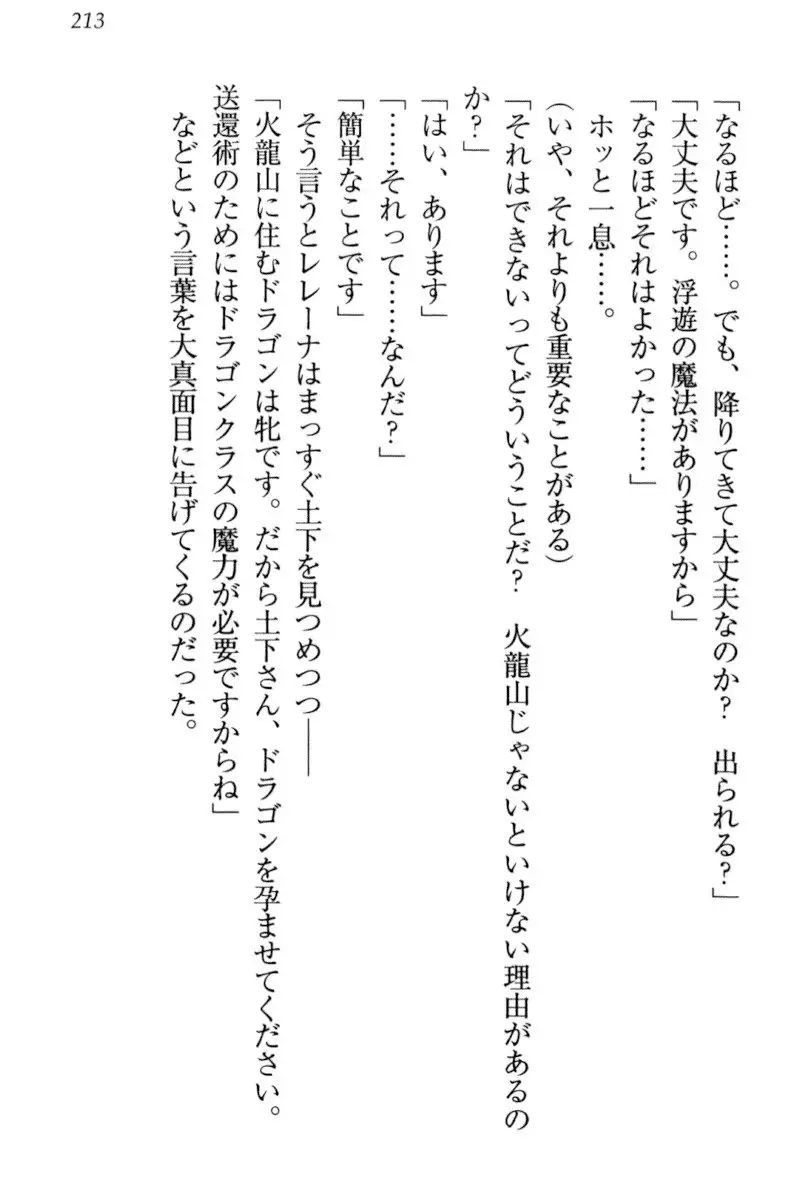 213
「なるほど……。でも、降りてきて大丈夫なのか？　出られる？」
「大丈夫です。浮遊の魔法がありますから」
「なるほどそれはよかった……」
ホッと一息……。
(いや、それよりも重要なことがある)
「それはできないってどういうことだ？　火龍山じゃないといけない理由があるの
か？」
「はい、あります」
「……それって……なんだ？」
「簡単なことです」
そう言うとレレーナはまっすぐ土下を見つめつつ――
「火龍山に住むドラゴンは牝です。だから土下さん、ドラゴンを孕ませてください。
送還術のためにはドラゴンクラスの魔力が必要ですからね」
などという言葉を大真面目に告げてくるのだった。